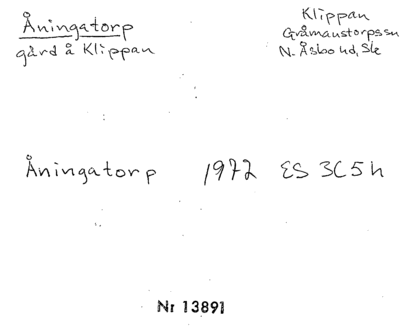 Åningatorp
gård å Klippan
Klippan
Gråmanstorps sn
N. Åsbo hd, Sk
Åningatorp 1972 ES 3C5h
Nr 13891